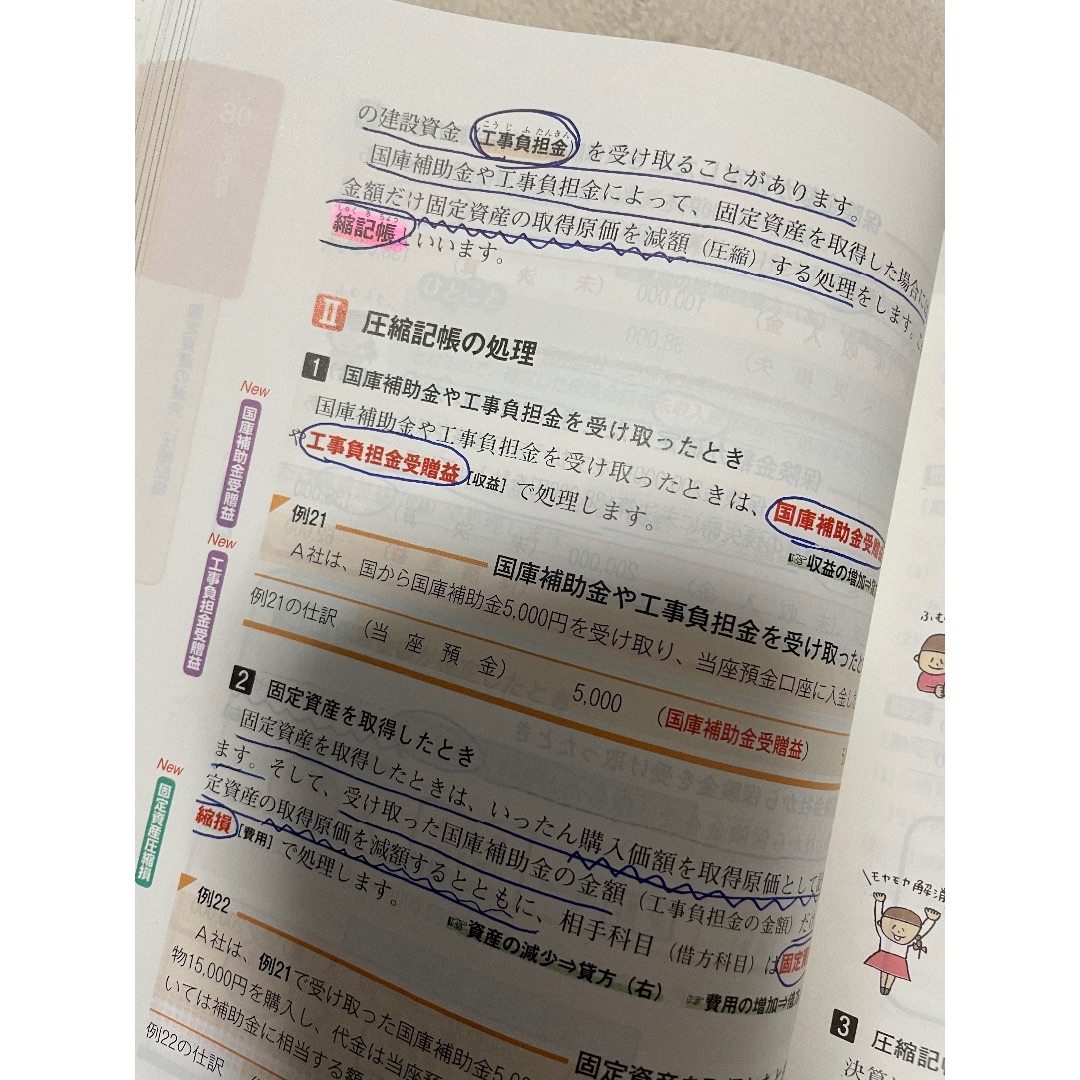 の建設資金（工事負担金）を受け取ることがあります。
こうじふたんきん
国庫補助金や工事負担金によって、固定資産を取得した場合に
金額だけ固定資産の取得原価を減額（圧縮）する処理をします。
縮記帳といいます。
しゅくきちょう
II 圧縮記帳の処理
1 国庫補助金や工事負担金を受け取ったとき
New
国庫補助金受贈益
国庫補助金や工事負担金を受け取ったときは、国庫補助金受贈
や工事負担金受贈益[収益]で処理します。
☞収益の増加⇒
New
工事負担金受贈益
例21
国庫補助金や工事負担金を受け取ったと
A社は、国から国庫補助金5,000円を受け取り、当座預金口座に入金し
例21の仕訳 （当座預金） 5,000 （国庫補助金受贈益）
2 固定資産を取得したとき
固定資産を取得したときは、いったん購入価額を取得原価として
ます。そして、受け取った国庫補助金の金額（工事負担金の金額）だ
定資産の取得原価を減額するとともに、相手科目（借方科目）は固定
縮損[費用]で処理します。
New
固定資産圧縮損
☞資産の減少⇒貸方（右）
☞費用の増加⇒
例22
固定資産を取得したと
A社は、例21で受け取った国庫補助金5,0
物15,000円を購入し、代金は当座預
いては補助金に相当する額
例22の仕訳
ふむ
モヤモヤ解消
3 圧縮記
決算